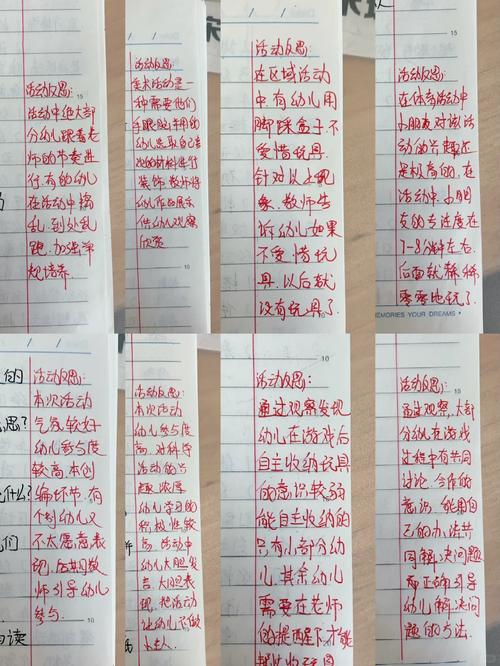 活动反思:
活动中绝大部
分幼儿跟着老
师的节奏进
行,有的幼儿
在活动中捣
乱,到处乱
跑,加强常
规培养.
活动反思:
美术活动是一
种需要他们
手眼脑并用的
幼儿选取自己喜
欢的材料进行
装饰,教师将
幼儿作品展示
供幼儿观察
欣赏
活动反思:
在区域活动
中,有幼儿用
脚踩盒子,不
爱惜玩具.
针对以上现
象,教师告
诉幼儿如果
不爱惜玩
具,以后就
没有玩具了.
活动反思:
在体育活动中
小朋友对该活
动的兴趣还
是挺高的,在
活动中,小朋
友的专注度在
7-8分钟左右.
后面就稀稀
零零地玩了.
MEMORIES YOUR DREAMS
活动反思:
本次活动
气氛较好
幼儿参与度
较高,本创
编环节,有
个别幼儿又
不太愿意表
现,后期教
师引导幼儿
参与.
活动反思:
本次活动
幼儿参与度
高,对科学
活动的兴
趣浓厚
幼儿学习的
积极性较
高,活动中
幼儿大胆发
言,大胆表
现,把活动
让幼儿不做
小主人.
活动反思:
通过观察发现
幼儿在游戏后
自主收纳玩具
的意识较弱
能自主收纳的
只有小部分幼
儿,其余幼儿
需要在老师
的提醒下才能
活动反思:
通过观察,大部
分幼儿在游戏
过程中有共同
讨论,合作的
意识,能用自
己的办法共
同解决问题
要正确引导
幼儿解决问
题的方法.
的
思?
什么?
们
阅读